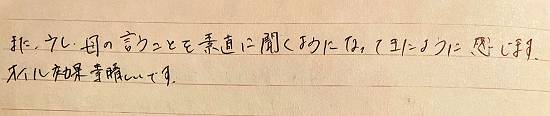 また、少し、母の言うことを素直に聞くようになってきたように感じます。
オイル効果素晴しいです。